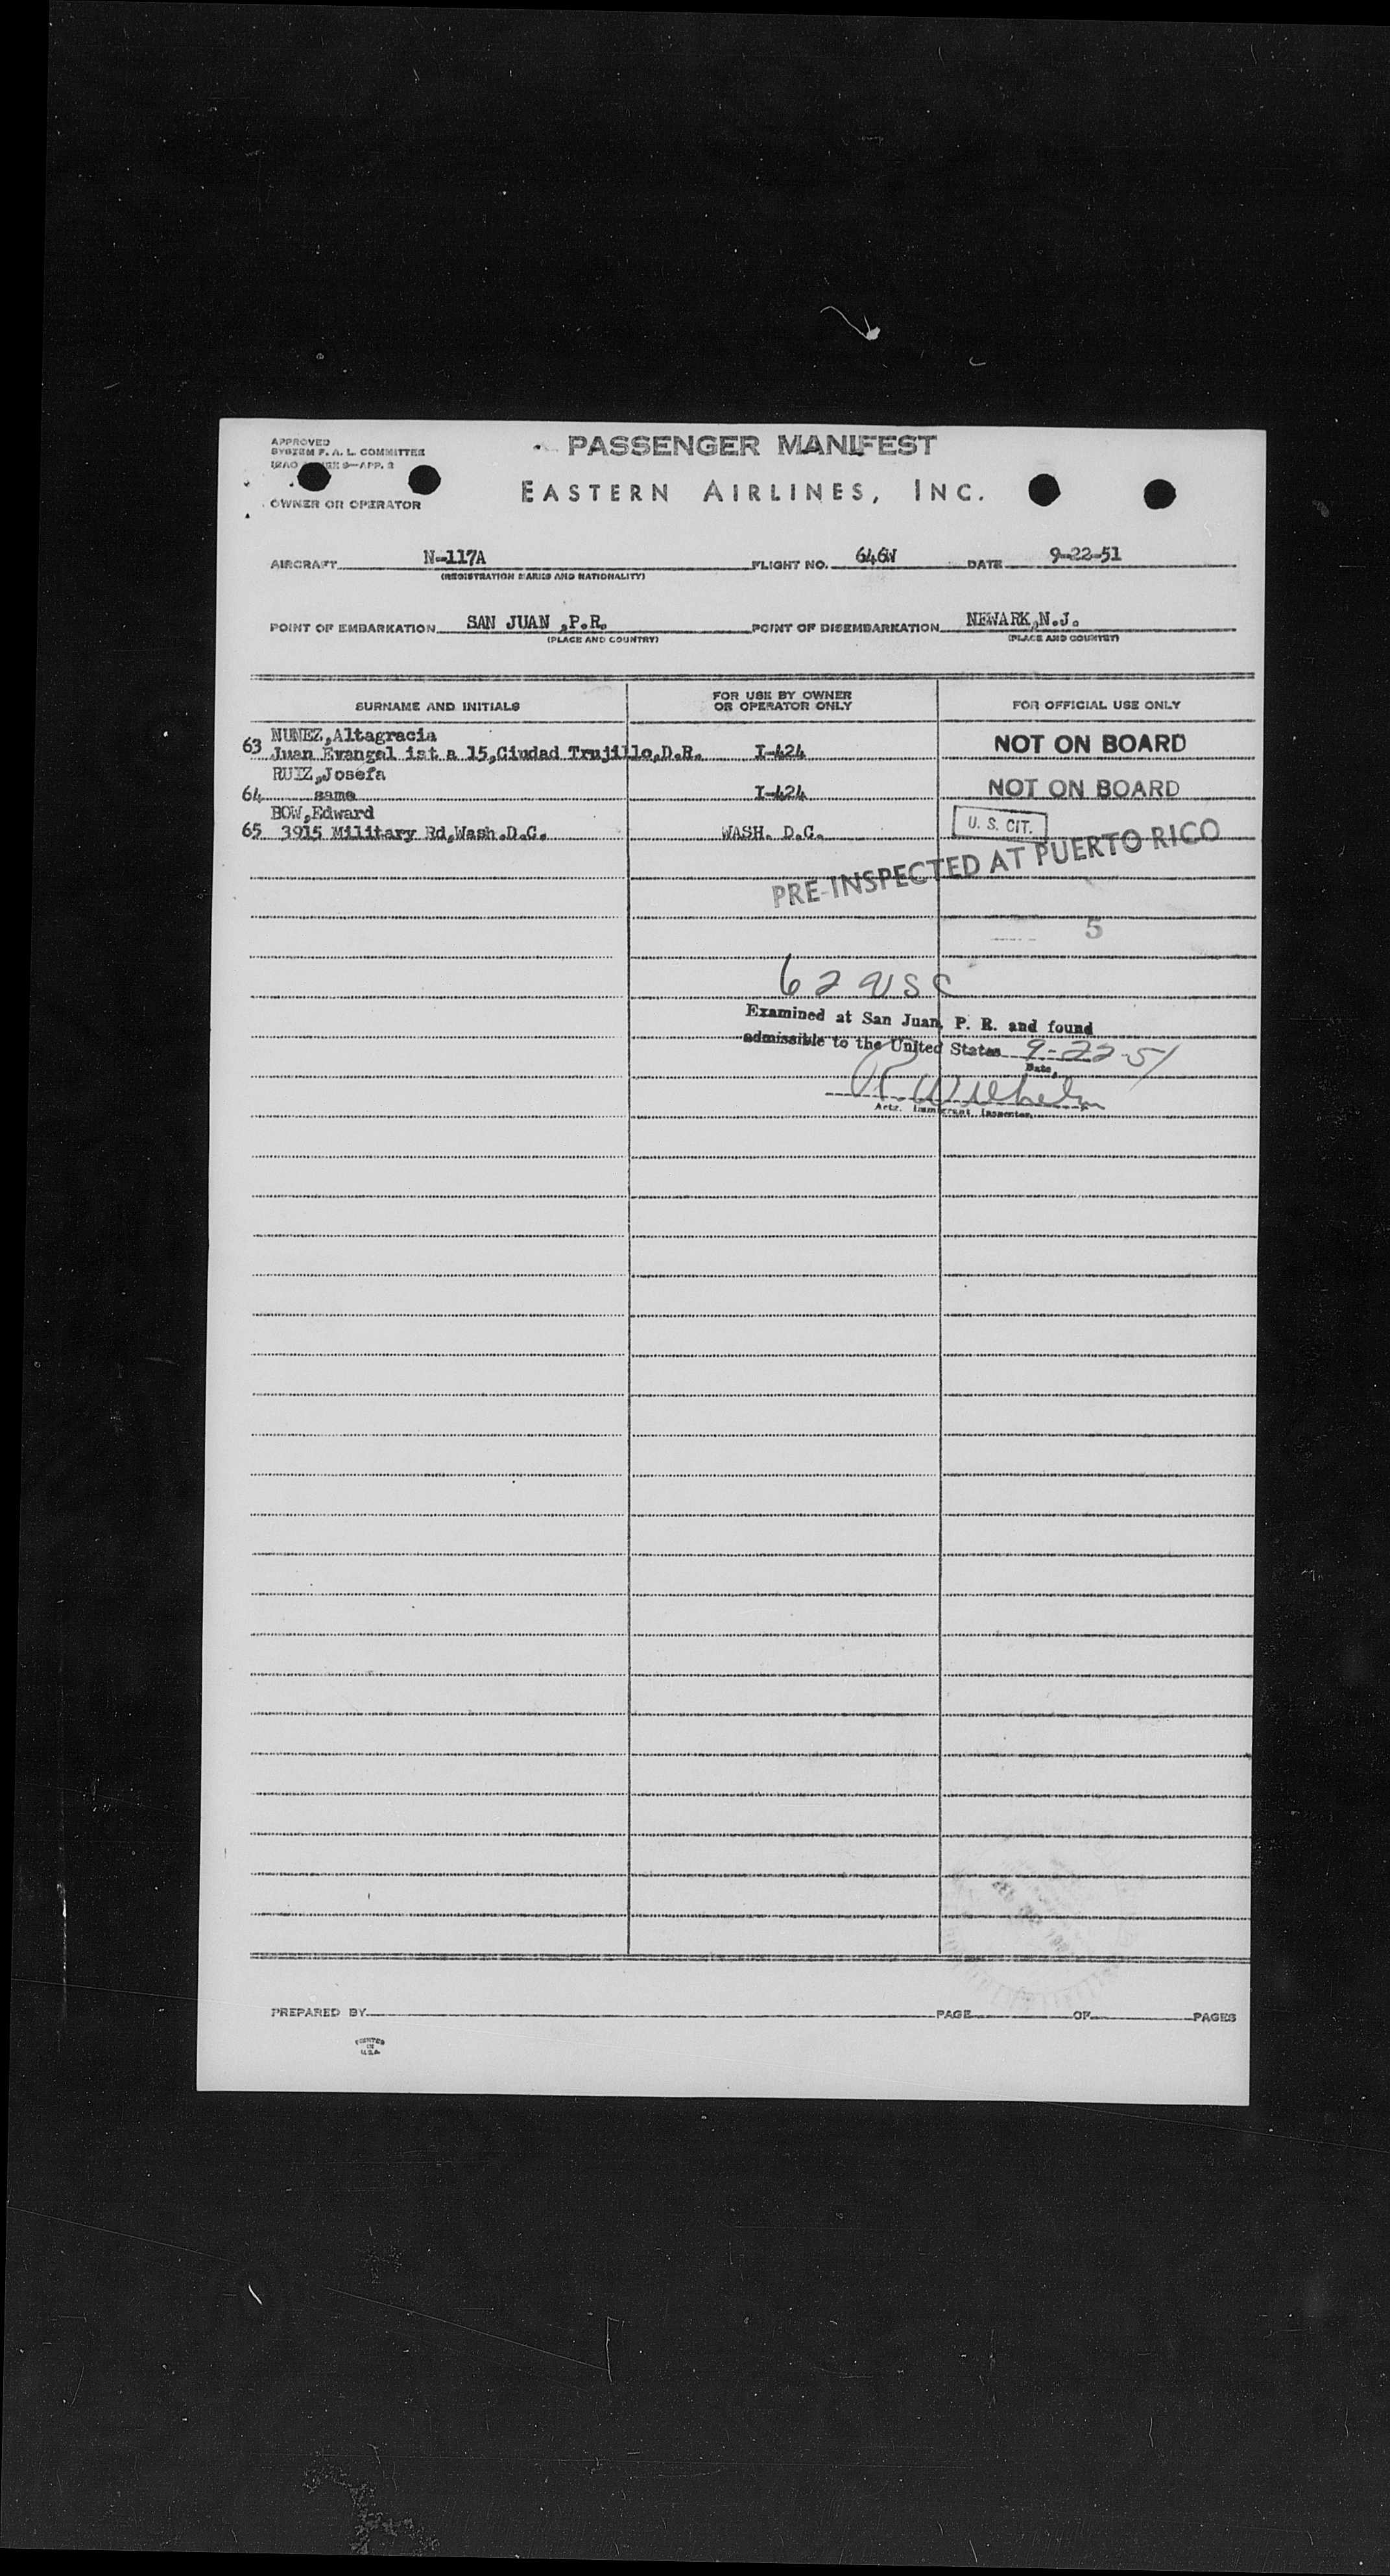 APPROVED
SYSTEM F. A. L. COMMITTEE
ICAO 9—APP. 3
PASSENGER MANIFEST
EASTERN AIRLINES, INC.
OWNER OR OPERATOR
AIRCRAFT N-117A FLIGHT NO. 646W DATE 9-22-51
(REGISTRATION MARKS AND NATIONALITY)
POINT OF EMBARKATION SAN JUAN ,P.R. POINT OF DISEMBARKATION NEWARK,N.J.
(PLACE AND COUNTRY) (PLACE AND COUNTRY)
SURNAME AND INITIALS FOR USE BY OWNER OR OPERATOR ONLY FOR OFFICIAL USE ONLY
NUNEZ,Altagracia
63 Juan Evangel ist a 15,Ciudad Trujillo,D.R. I-424 NOT ON BOARD
RUIZ,Josefa
64 same I-424 NOT ON BOARD
BOW,Edward
65 3915 Military Rd,Wash.D.C. WASH. D.C. U. S. CIT.
PRE-INSPECTED AT PUERTO RICO
5
62 USC
Examined at San Juan, P. R. and found
admissible to the United States 9-22-51
Date,
R. Wilhelm
Actg. Immigrant Inspector.
PREPARED BY PAGE OF PAGES
PRINTED
IN
U.S.A.